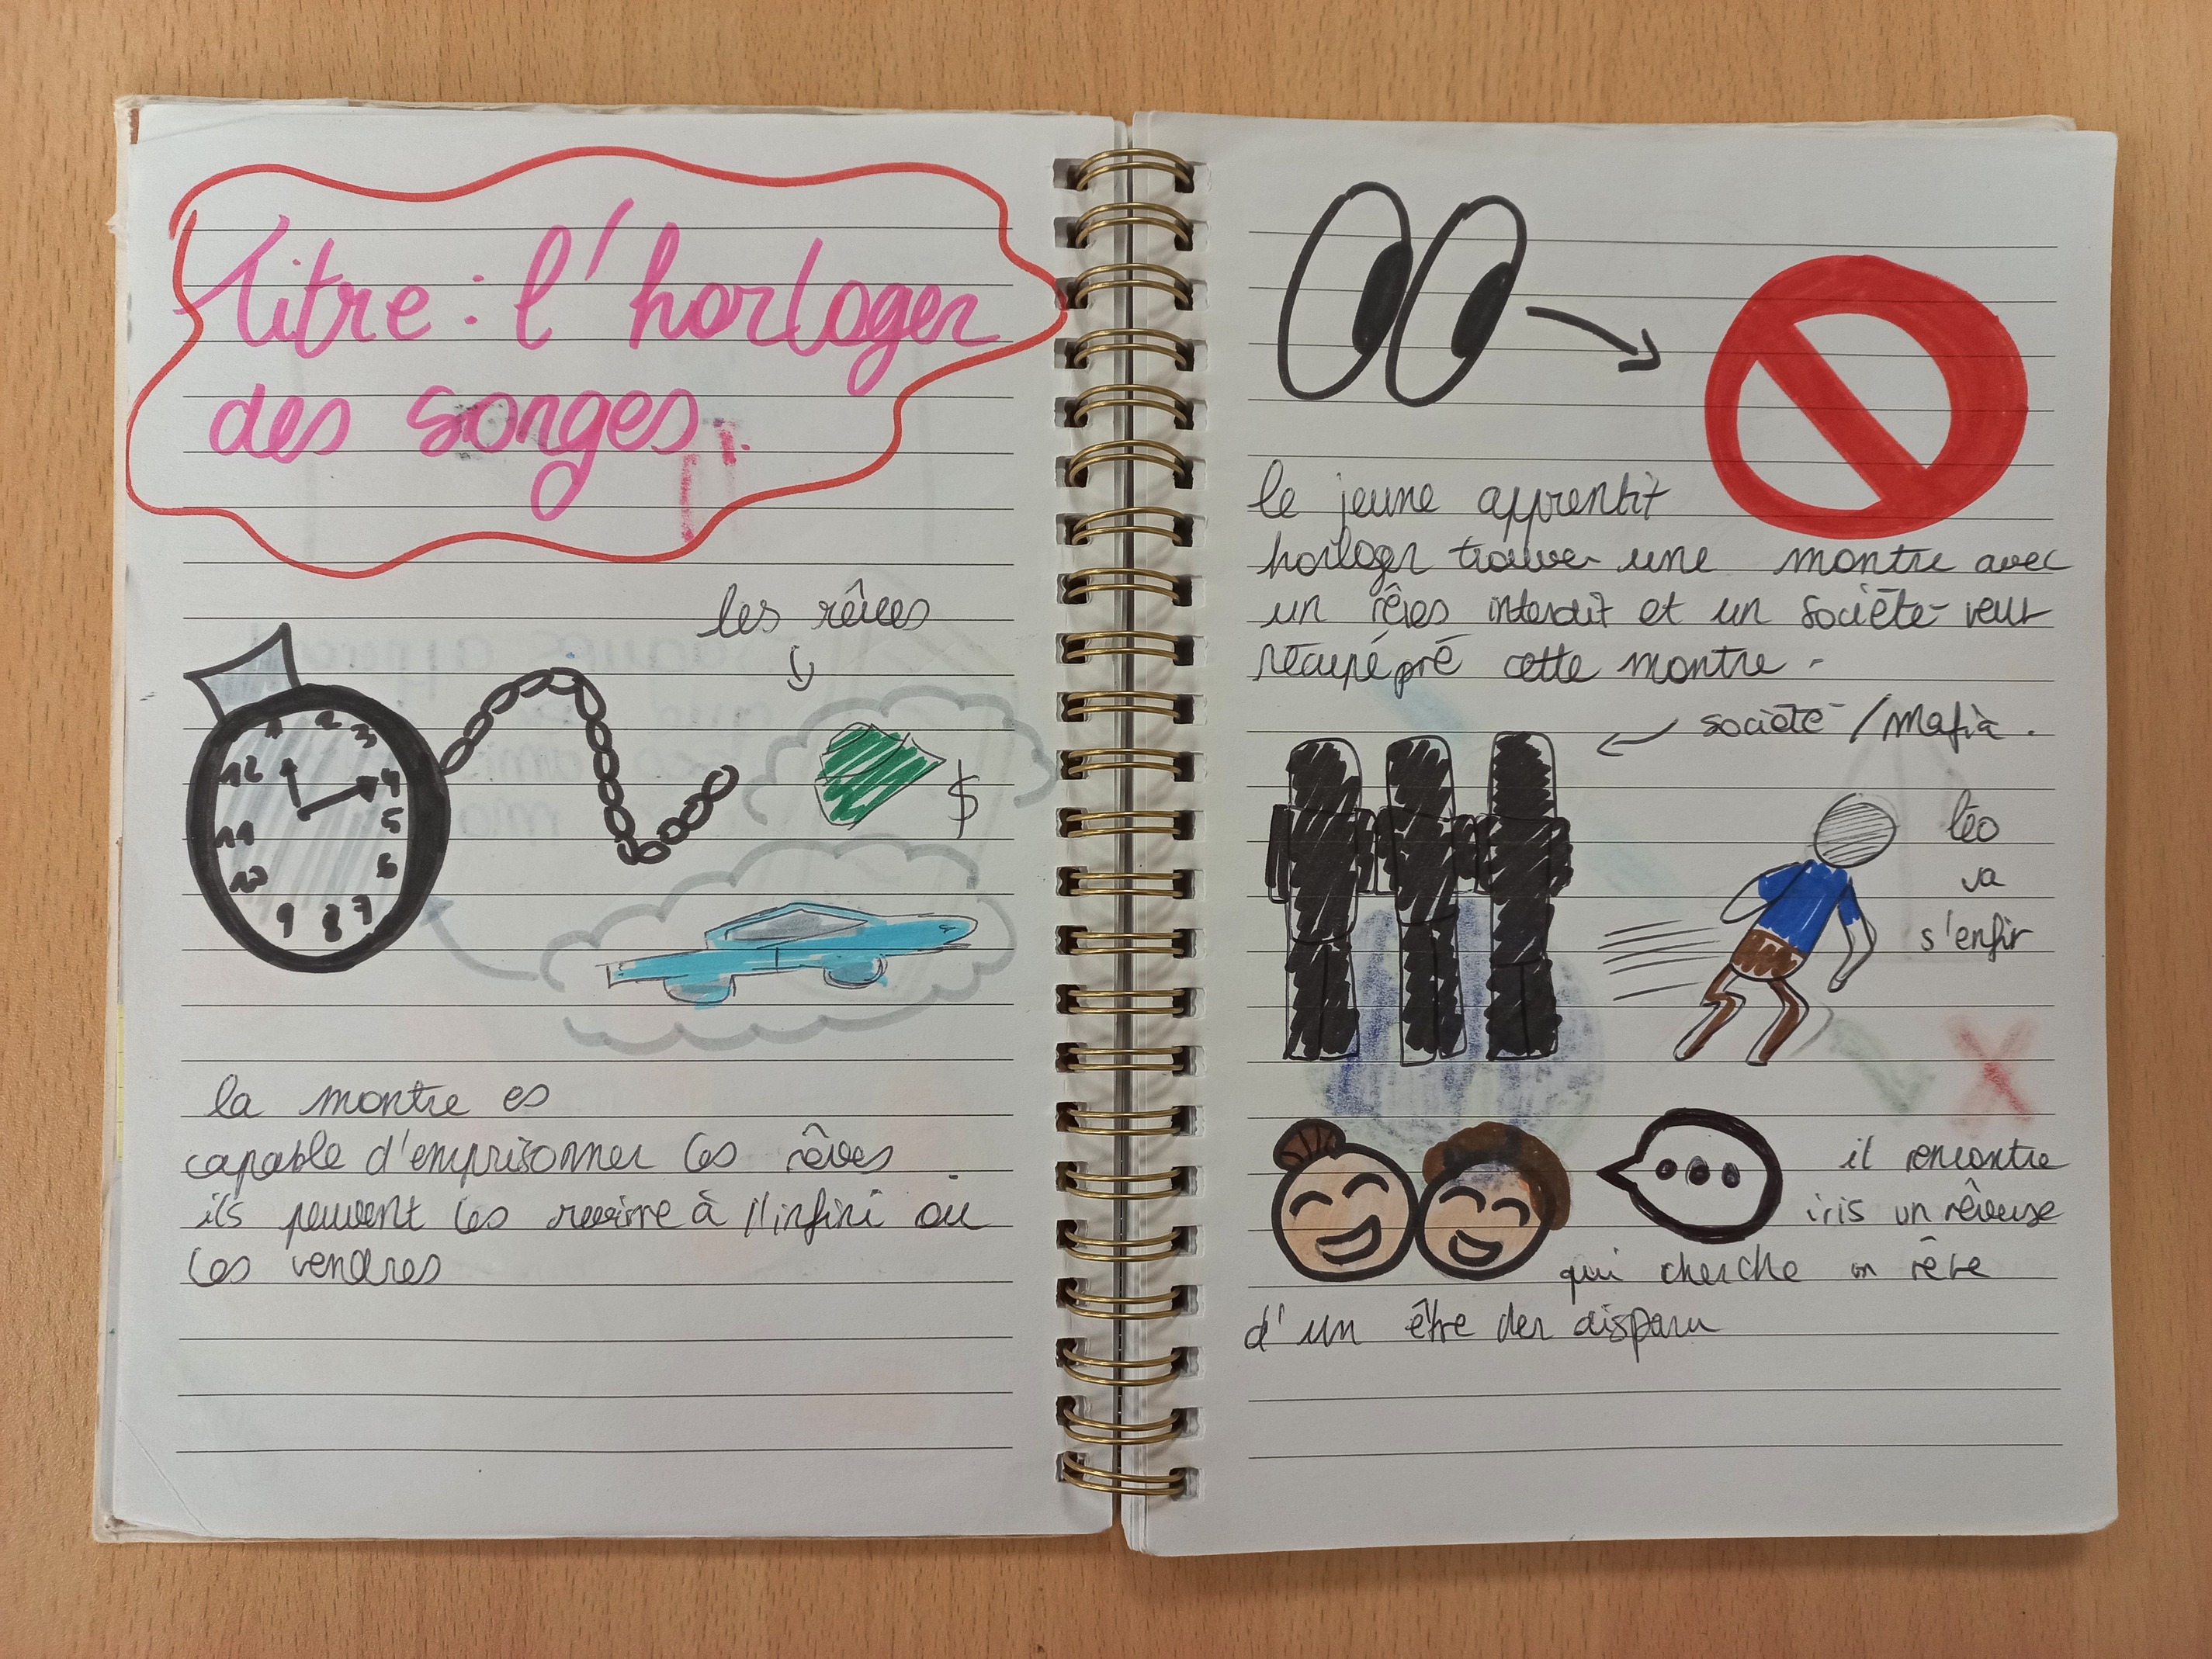 Titre : l'horloger
des songes.
les rêves
1 2 3 4 5 6 7 8 9 10 11 12
$
la montre es
capable d'emprisonner les rêves.
ils peuvent les revivre à l'infini ou
les vendres
le jeune apprentit
horloger trouve une montre avec
un rêves interdit et un société veut
récupépré cette montre.
société / mafia.
léo
va
s'enfir
il rencontre
iris un rêveuse
qui cherche un rêve
d'un être der disparu